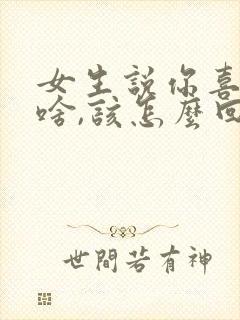 女生說你喜
啥,該怎麼回
世間若有神